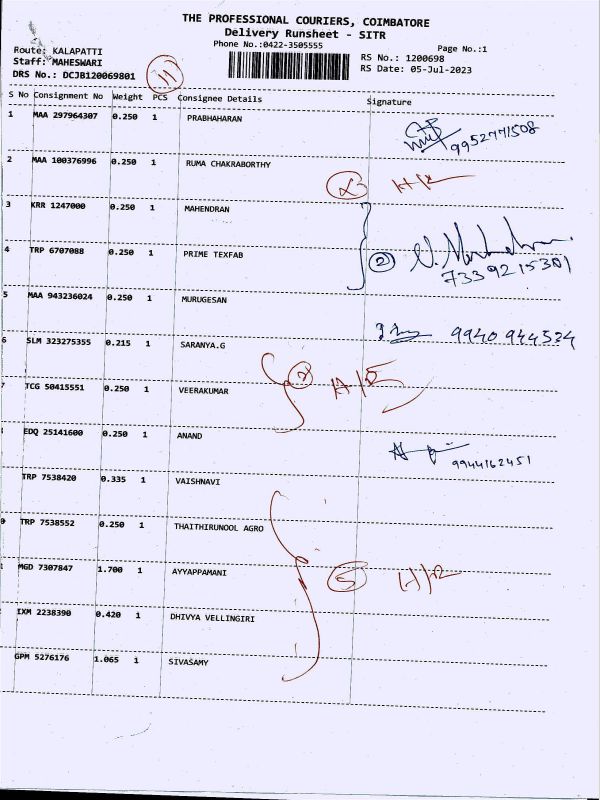 THE PROFESSIONAL COURIERS, COIMBATORE
Delivery Runsheet - SITR
Phone No.:0422-3505555
Page No.:1
Route: KALAPATTI
RS No.: 1200698
Staff: MAHESWARI
RS Date: 05-Jul-2023
DRS No.: DCJB120069801
11
S No Consignment No Weight PCS Consignee Details Signature
1 MAA 297964307 0.250 1 PRABHAHARAN 9952771508
2 MAA 100376996 0.250 1 RUMA CHAKRABORTHY
3 KRR 1247000 0.250 1 MAHENDRAN
4 TRP 6707088 0.250 1 PRIME TEXFAB 2 7339215301
5 MAA 943236024 0.250 1 MURUGESAN 9940 944524
6 SLM 323275355 0.215 1 SARANYA.G
7 TCG 50415551 0.250 1 VEERAKUMAR
EDQ 25141600 0.250 1 ANAND 9944162451
TRP 7538420 0.335 1 VAISHNAVI
TRP 7538552 0.250 1 THAITHIRUNOOL AGRO
MGD 7307847 1.700 1 AYYAPPAMANI 5
IXM 2238390 0.420 1 DHIVYA VELLINGIRI
GPM 5276176 1.065 1 SIVASAMY